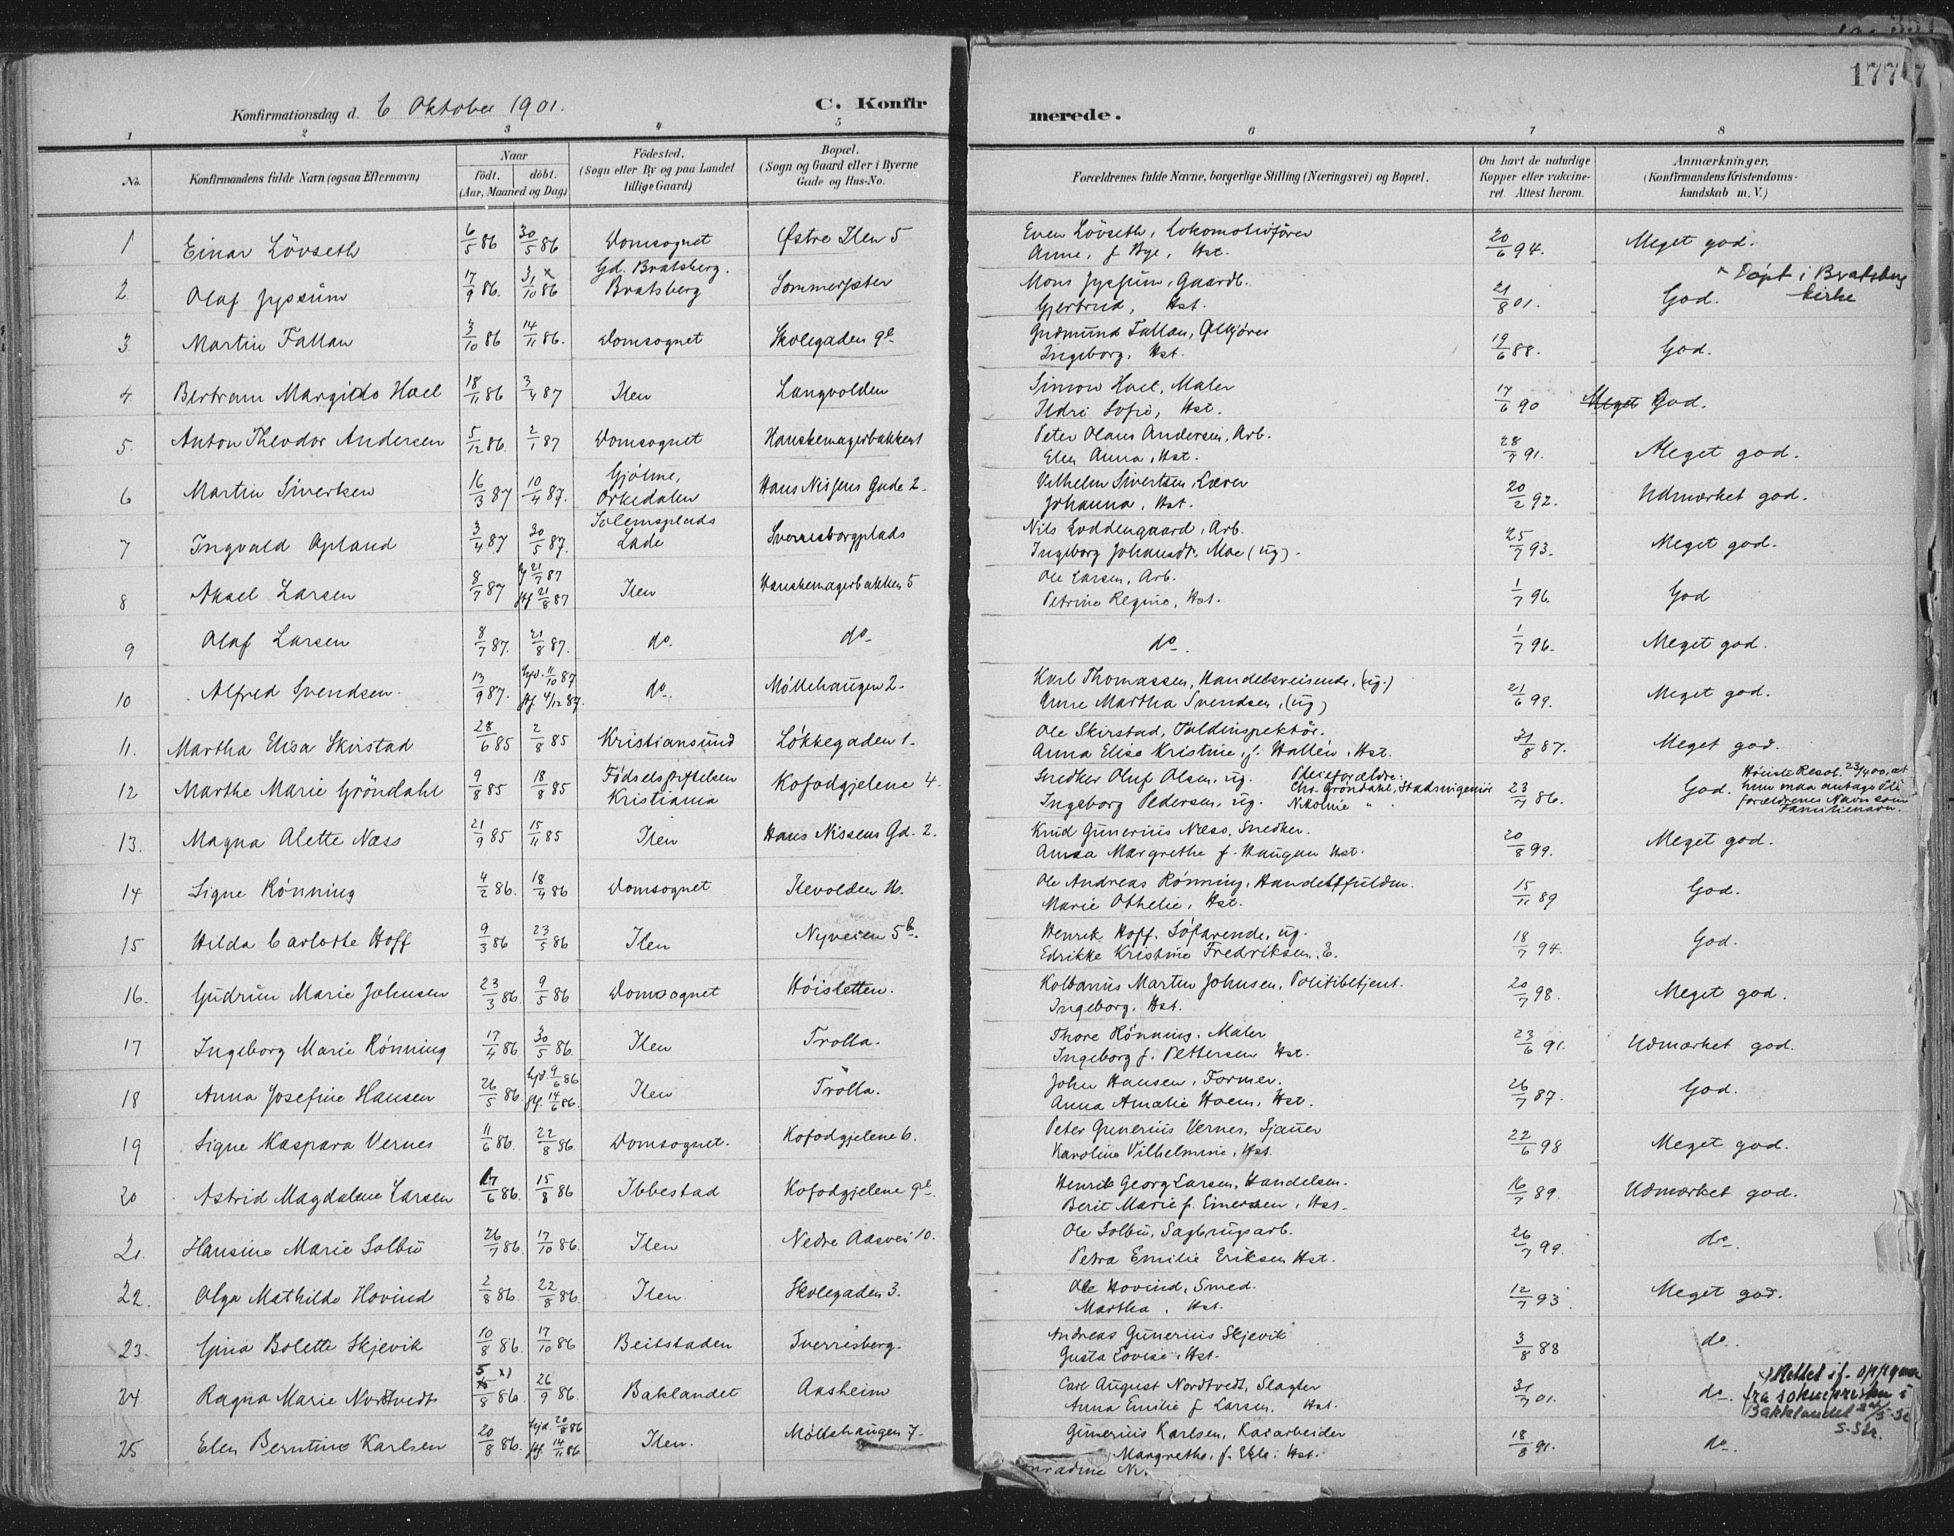 177
Konfirmationsdag d. 6 Oktober 1901. C. Konfirmerede.
1 2 3 4 5 6 7 8
No. Konfirmandens fulde Navn (ogsaa Efternavn) Naar födt. döbt. (Aar, Maaned og Dag) Födested. (Sogn eller By og paa Landet tillige Gaard) Bopæl. (Sogn og Gaard eller i Byerne Gade og Hus-No. Forældrenes fulde Navne, borgerlige Stilling (Næringsvei) og Bopæl. Om havt de naturlige Kopper eller vakcineret. Attest herom. Anmærkninger. (Konfirmandens Kristendomskundskab m. V.)
1 Einar Lövseth 6/5 86 30/5 86 Domsognet Østre Ilen 5 Even Lövseth, Lokomotivförer
Anne, f. Bye, Hst. 20/6 94. Meget god.
2. Olaf Jyssum 17/9 86. 31/10 86 x Gd. Bratsberg. Bratsberg Mons Jyssum, Gaardb.
Gjertrud, Hst. 21/8 01. God. x Döpt i Bratsberg kirke
3 Martin Fallan 3/10 86 14/11 86. Domsognet Skolegaden 9 Gudmund Fallan,
Ingeborg, Hst. 19/6 88. God.
4 Bertram Margido Hoel 18/11 86 3/4 87 Ilen Langvolden Simon Hoel, Maler
Ildri Sofie, Hst. 17/6 90 Meget God.
5. Anton Theodor Andersen 5/12 86. 2/1 87 Domsognet Hanskemagerbakken 1 Peter Olaus Andersen, Arb.
Elen Anna, Hst. 28/7 91. Meget god.
6 Martin Sivertsen 16/3 87 10/4 87. Gjölme, Orkedalen Hans Nissens Gade 2. Vilhelm Sivertsen, Lærer
Johanna, Hst. 20/2 92. Udmærket god.
7 Ingvald Opland 3/4 87 30/5 87. Solemsplads Lade Sverresborgplads Nils Loddengaard, Arb.
Ingeborg Johansdr. Moe (ug). 25/7 93. Meget god.
8 Aksel Larsen 8/7 87 21/7 87 21/8 87 Ilen Hanskemagerbakken 5 Ole Larsen, Arb.
Petrine Regine, Hst. 1/7 96. God
9 Olaf Larsen 8/7 87. 21/8 87. do. do. do. 1/7 96. Meget god.
10 Alfred Svendsen 13/9 87. hjd. 11/10 87 4/12 87. do. Möllehaugen 2. Karl Thomassen, Handelsreisende, (ug.)
Anne Martha Svendsen, (ug) 21/6 99. Meget god.
11. Martha Elisa Skirstad 28/6 85 2/8 85 Kristiansund Løkkegaden 1. Ole Skirstad, Toldinspektör.
Anna Elise Kristine, f. Hallen, Hst. 31/8 87. Meget god.
12 Marthe Marie Gröndahl 9/8 85 18/8 85 Födselsstiftelsen Kristiania Kofodgjelene 4. Snedker Oluf Olsen, ug. Pleieforældre: Chr. Gröndahl, Stadsingeniör
Ingeborg Pedersen, ug. Nikoline " 23/7 86. God. Höieste Resol. 23/4 00, at hun maa antage Pleieforældrenes Navn som Familienavn.
13. Magna Alette Næss 21/9 85 15/11 85 Ilen Hans Nissens Gd. 2. Knud Gunerius Næss, Snedker.
Anna Margrethe f. Haugan Hst. 20/8 99. Meget god.
14 Signe Rönning 4/2 86. 18/4 86 Domsognet Ilevolden 16. Ole Andreas Rönning, Handelsfuldm.
Marie Othelie, Hst. 15/11 89 God.
15 Hilda Carlotte Hoff 9/3 86 23/5 86 Ilen Nyveien 5b. Henrik Hoff, Söfarende, ug.
Edrikke Kristine Fredriksen, E. 18/7 94. God.
16. Gudrun Marie Johnsen 23/3 86. 9/5 86 Domsognet Höisletten. Kolbanus Martin Johnsen, Politibetjent.
Ingeborg, Hst. 20/7 98. Meget god.
17 Ingeborg Marie Rönning 17/4 86 30/5 86. Ilen Trolla. Thore Rönning, Maler
Ingeborg f. Pettersen Hst. 23/6 91. Udmærket god.
18 Anna Josefine Hansen 26/5 86. hjd. 9/6 86 14/6 86. Ilen Trolla. John Hansen, Former.
Anna Amalie Hoem, Hst. 26/7 87. God.
19 Signe Kaspara Vernes 11/6 86. 22/8 86. Domsognet. Kofodgjelene 6. Peter Gunerius Vernes, Sjauer
Karoline Vilhelmine, Hst. 22/6 98 Meget god.
20 Astrid Magdalene Larsen 17/6 86. 15/8 86 Ibbestad Kofodgjelene 9 Henrik Georg Larsen, Handelsm.
Berit Marie f. Einersen, Hst. 16/7 89. Udmærket god.
21. Hansine Marie Solbu 26/7 86. 17/10 86. Ilen Nedre Aasvei 10. Ole Solbu, Sagbrugsarb.
Petra Emilie Eriksen Hst. 26/7 99. do.
22. Olga Mathilde Hovind 2/8 86. 22/8 86. Ilen. Skolegaden 3. Ole Hovind, Smed.
Martha, Hst. 12/7 93. Meget god.
23. Gina Bolette Skjevik 10/8 86. 17/10 86 Beitstaden Sverresborg. Andreas Gunerius Skjevik
Gusta Lovise, Hst. 3/8 88 do.
24 Ragna Marie Nordtvedt 5/8 86 x) 26/9 86. Baklandet Aasheim Carl August Nordtvedt, Slagter
Anna Emilie f. Larsen, Hst. 31/7 01. do. x) Rettet if. fra sokneprest en i Bakklandet
25 Elen Berntine Karlsen 20/8 86. hjd. 20/8 86 14/11 86 Ilen. Möllehaugen 7. Gunerius Karlsen, Raiarbeider
Margrethe, f. Ekle, Hst. 18/8 91. do.